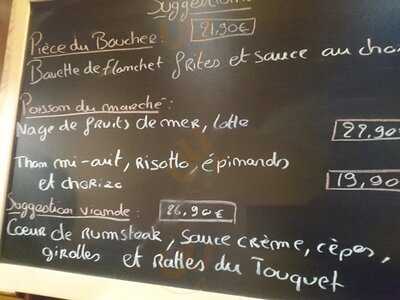 Suggestions
Pièce du Boucher: 21,90€
Bavette de flanchet frites et sauce au cho
Poisson du marché:
Nage de fruits de mer, lotte 29,90
Thon mi-cuit, Risotto, épinards
et chorizo 19,90
Suggestion viande: 26,90€
Cœur de Rumsteak, sauce crème, cèpes,
girolles et Rattes du Touquet